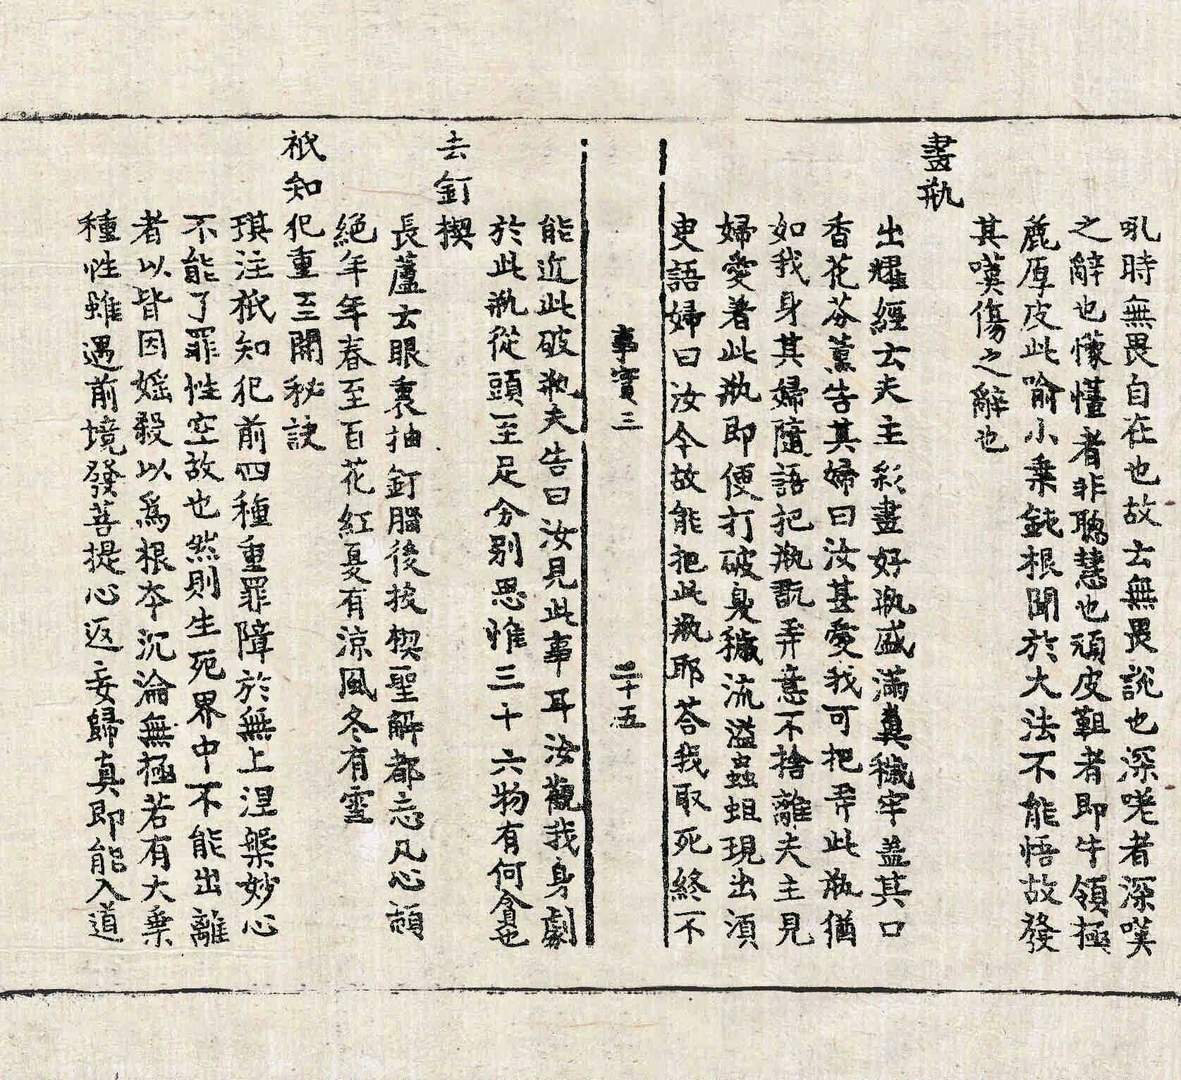 吼時無畏自在也故云無畏説也深嗟者深嘆
之辭也懞憧者非聰慧也頑皮靼者即牛領極
麁厚皮此喻小乗鈍根聞於大法不能悟故發
其嘆傷之辭也
畫瓶
出耀經云夫主彩畫好瓶盛滿糞穢牢盖其口
香花芬薰告其婦曰汝甚愛我可把弄此瓶猶
如我身其婦隨語把瓶翫弄意不捨離夫主見
婦愛著此瓶即便打破臭穢流溢蟲蛆現出須
吏語婦曰汝今故能把此瓶耶荅我取死終不
事實三 二十五
能近此破瓶夫告曰汝見此事耳汝觀我身劇
於此瓶從頭至足分别思惟三十六物有何貪也
去釘楔
長蘆云眼裏抽釘腦後拔楔聖解都忘凡心頓
絕年年春至百花紅夏有涼風冬有雪
祇知犯重三關秘訣
琪注祇知犯前四種重罪障於無上涅槃妙心
不能了罪性空故也然則生死界中不能出離
者以皆因婬殺以爲根夲沉淪無極若有大乗
種性雖遇前境發菩提心返妄歸真即能入道